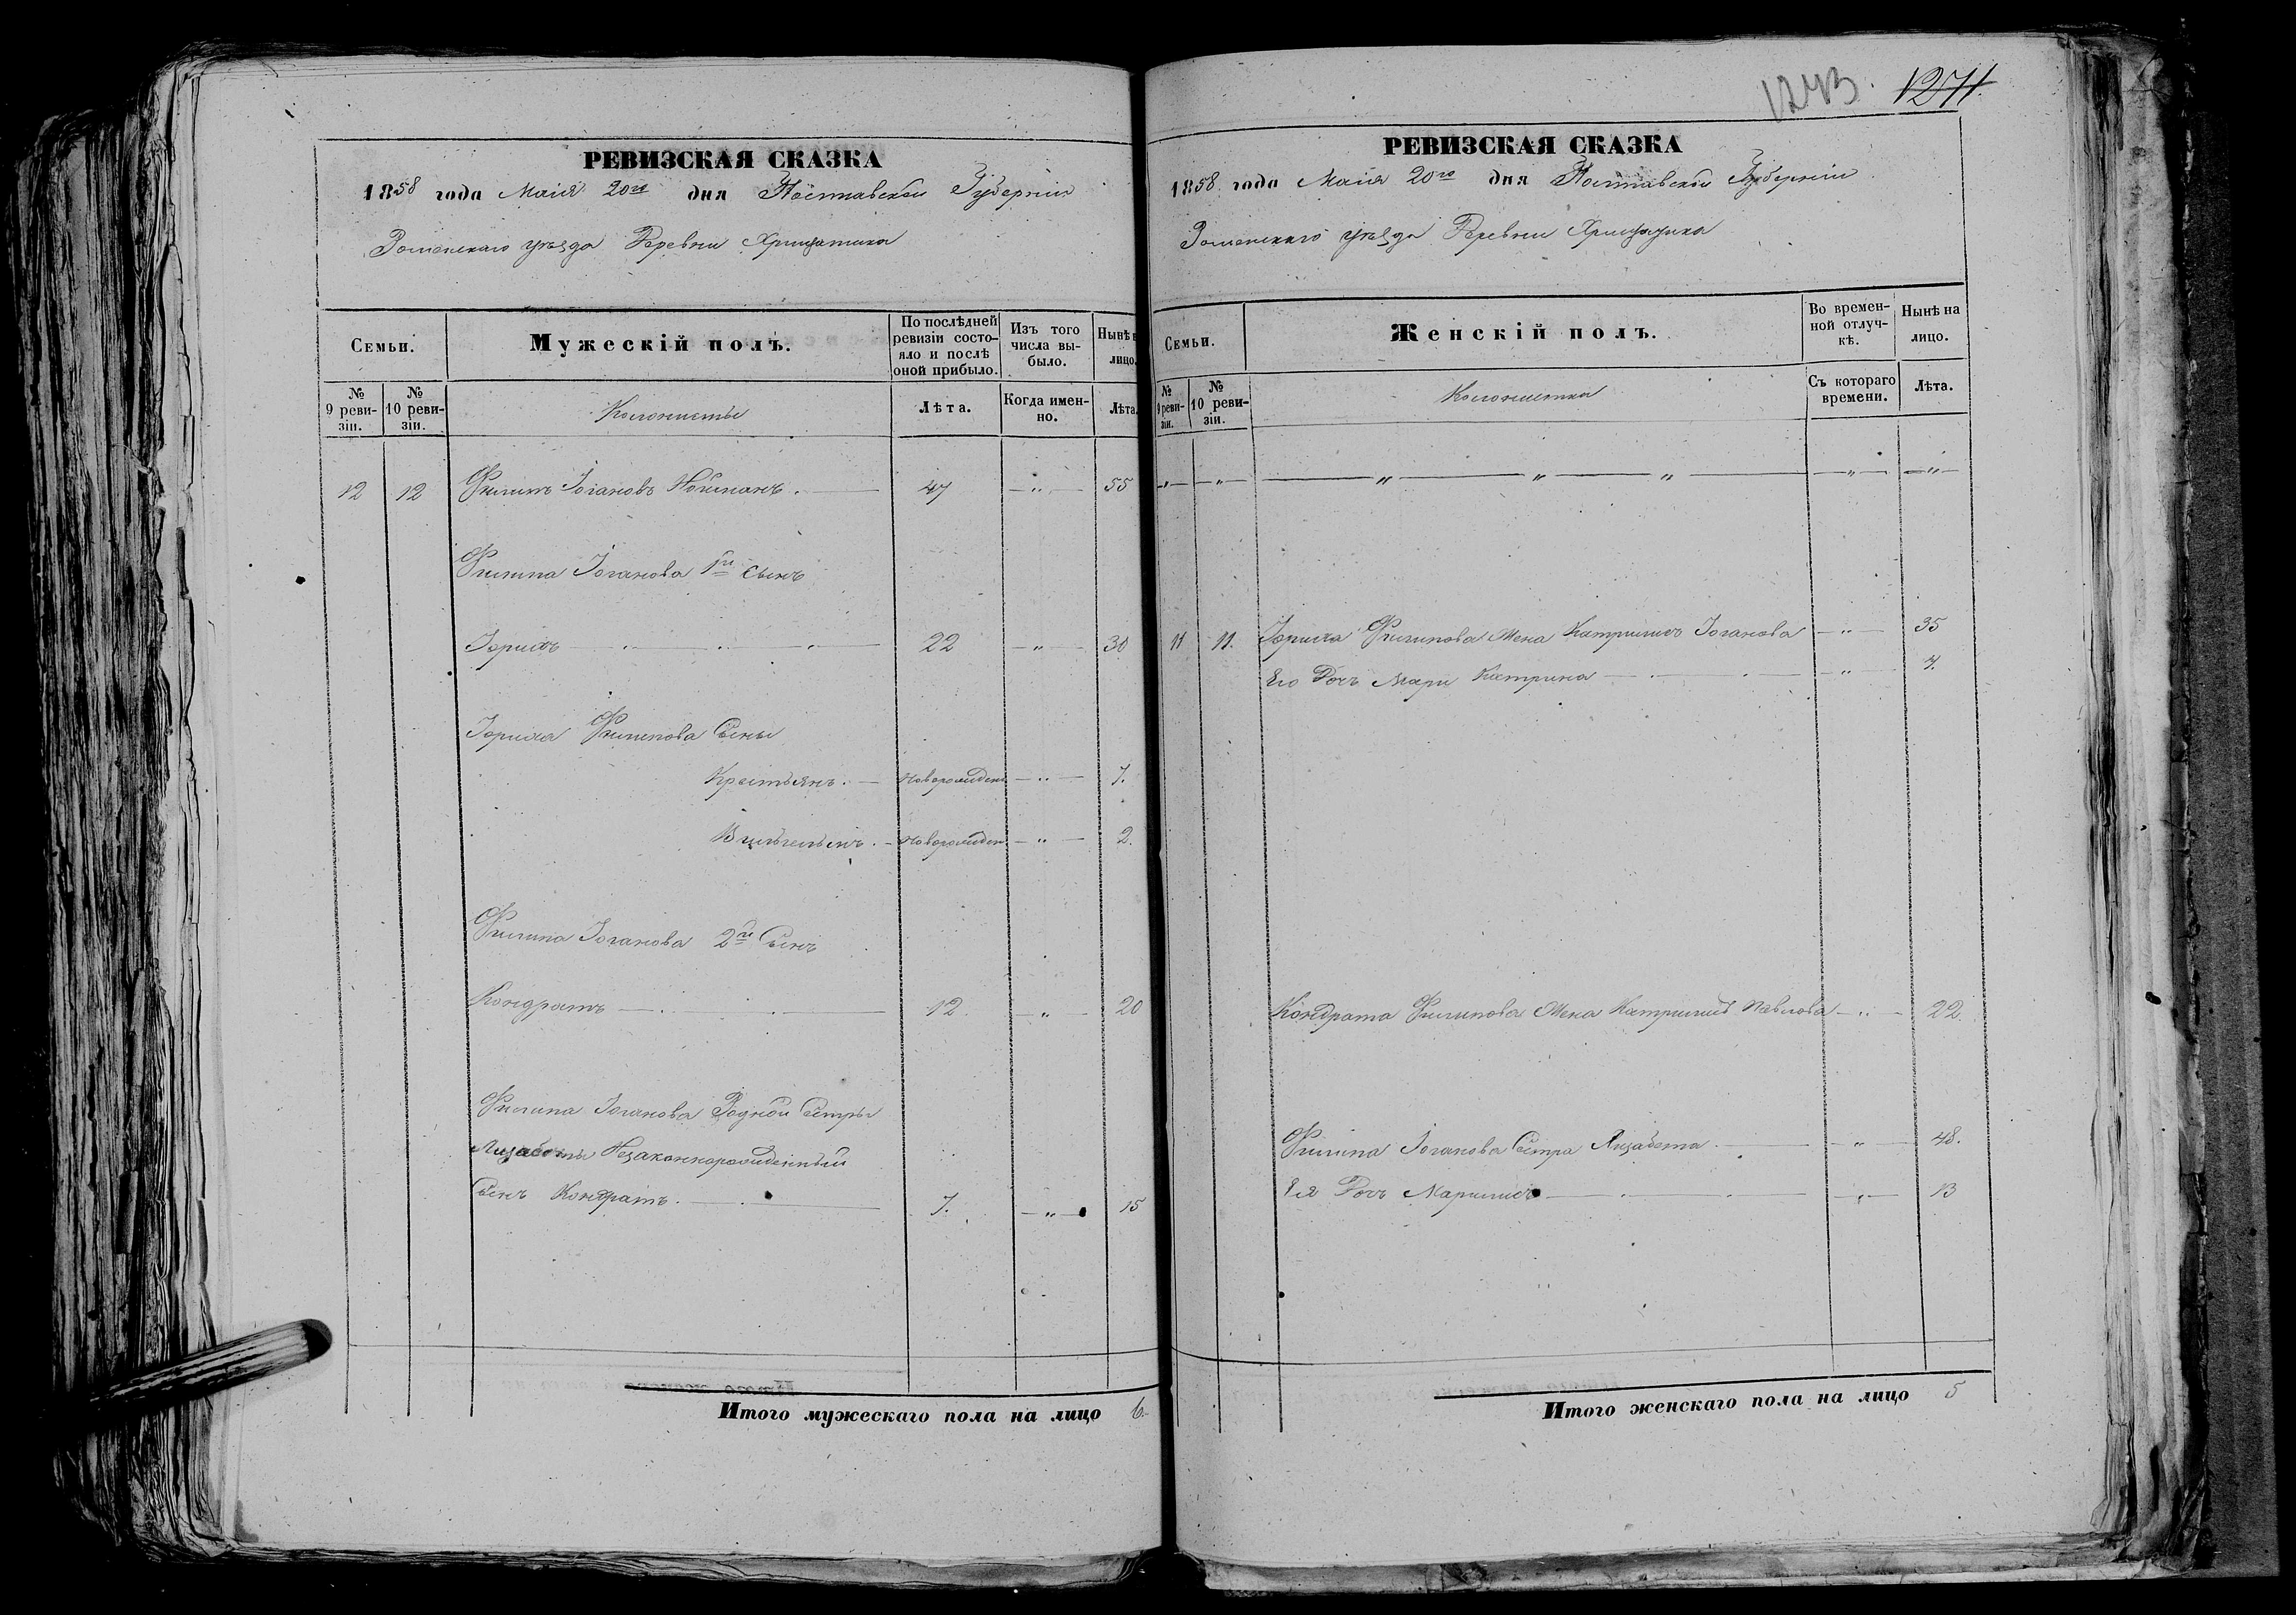 РЕВИЗСКАЯ СКАЗКА
1858 года Маія 20го дня Полтавской Губерніи
Роменскаго уѣзда Деревни Хрищатика
Семьи.
Мужескій полъ.
По послѣдней ревизіи состояло и послѣ оной прибыло.
Изъ того числа выбыло.
Нынѣ
лицо.
№ 9 ревизіи.
№ 10 ревизіи.
Колонисты
Лѣта.
Когда именно.
Лѣта.
12 12 Филипъ Іогановъ Нейманъ. — 47 — " — 55
Филипа Іоганова 1й сынъ
22 — " — 30
Филипова Сыны
Крестьянъ. — новорожден — " — 7.
Вильгельмъ. — новорожден — " — 2.
Филипа Іоганова 2й Сынъ
Кондратъ — 12 — " — 20
Филипа Іоганова Родной Сестры
Лизабеты Незаконнорожденный
Сынъ Кондратъ. — 7. — " — 15
Итого мужескаго пола на лицо 6.
1243. 1271.
РЕВИЗСКАЯ СКАЗКА
1858 года Маія 20го дня Полтавской Губерніи
Роменскаго уѣзда Деревни Хрищатика
Семьи.
Женскій полъ.
Во временной отлучкѣ.
Нынѣ на лицо.
№ 9 ревизіи.
№ 10 ревизіи.
Колонистки
Съ котораго времени.
Лѣта.
— " — — " — — " — " — " — — " — — " —
11 11. Филипова Жена Катрилисъ Іоганова — " — 35
Его Дочь Мари Катрина — " —
Кондрата Филипова Жена Катрилисъ Павлова — " — 22.
Филипа Іоганова Сестра Лизабета — " — 48.
Ея Дочь Марилисъ — " — 13
Итого женскаго пола на лицо 5